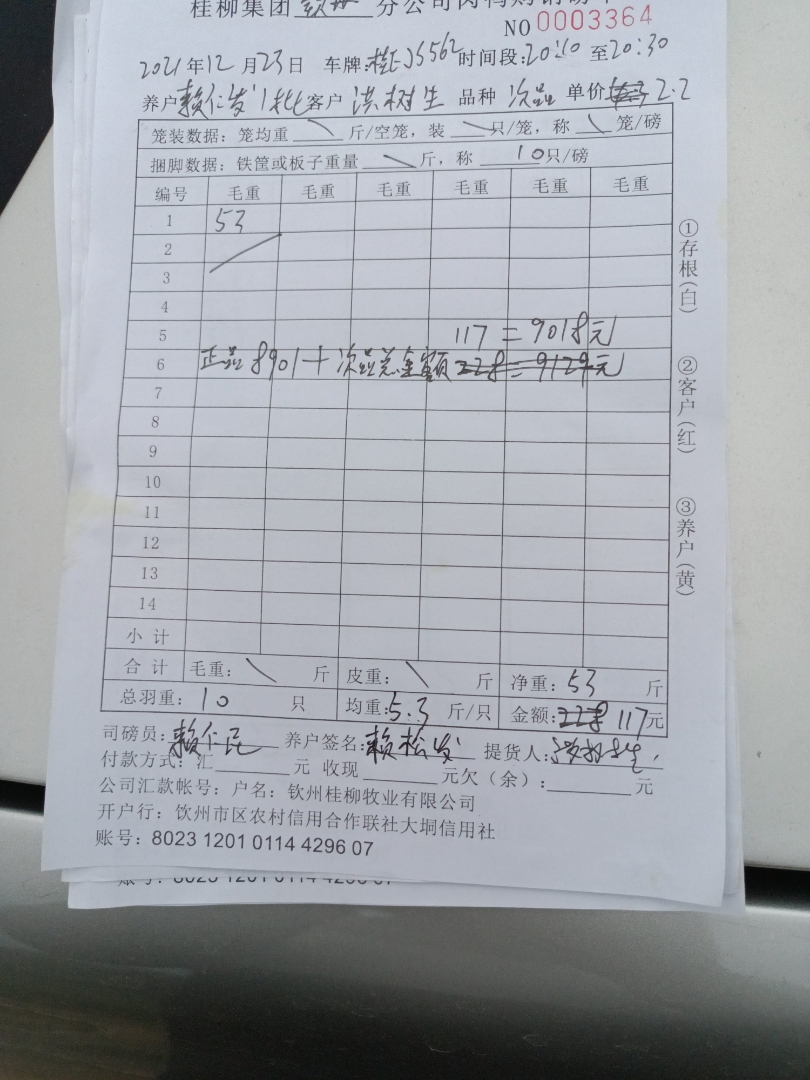 桂柳集团 钦州 分公司肉鸭购销磅单
NO 0003364
2021年12月23日 车牌:桂 5562 时间段:20:10 至20:30
养户 赖仁发 1批 客户 洪树生 品种 次品 单价 2.2
笼装数据: 笼均重 \ 斤/空笼, 装 \ 只/笼, 称 \ 笼/磅
捆脚数据: 铁筐或板子重量 \ 斤, 称 10只/磅
编号 毛重 毛重 毛重 毛重 毛重 毛重
1 53
2
3
4
5 117=9018元
6 正品8901+次品总金额 228=9129元
7
8
9
10
11
12
13
14
小 计
合 计 毛重: \ 斤 皮重: \ 斤 净重: 53 斤
总羽重: 10 只 均重: 5.3 斤/只 金额: 228 117元
司磅员: 赖仁民 养户签名: 赖松发 提货人: 洪树生
付款方式: 汇 元 收现 元欠(余): 元
公司汇款帐号: 户名: 钦州桂柳牧业有限公司
开户行: 饮州市区农村信用合作联社大垌信用社
账号: 8023 1201 0114 4296 07
账号: 8023 1201 0114 4296 07
①存根(白)
②客户(红)
③养户(黄)